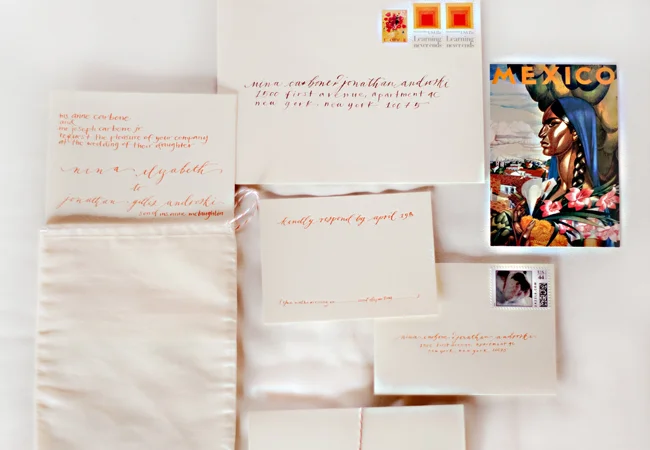 Learning
never ends
Learning
never ends
nina carbone & jonathan andruski
first avenue, apartment 4c
new york, new york
MEXICO
ms. anne carbone
and
mr. joseph carbone jr.
request the pleasure of your company
at the wedding of their daughter
nina elizabeth
to
jonathan gilles andruski
son of ms. anne mclaughlin
kindly respond by april 19th
US
44
nina carbone & jonathan andruski
first avenue, apartment 4c
new york, new york